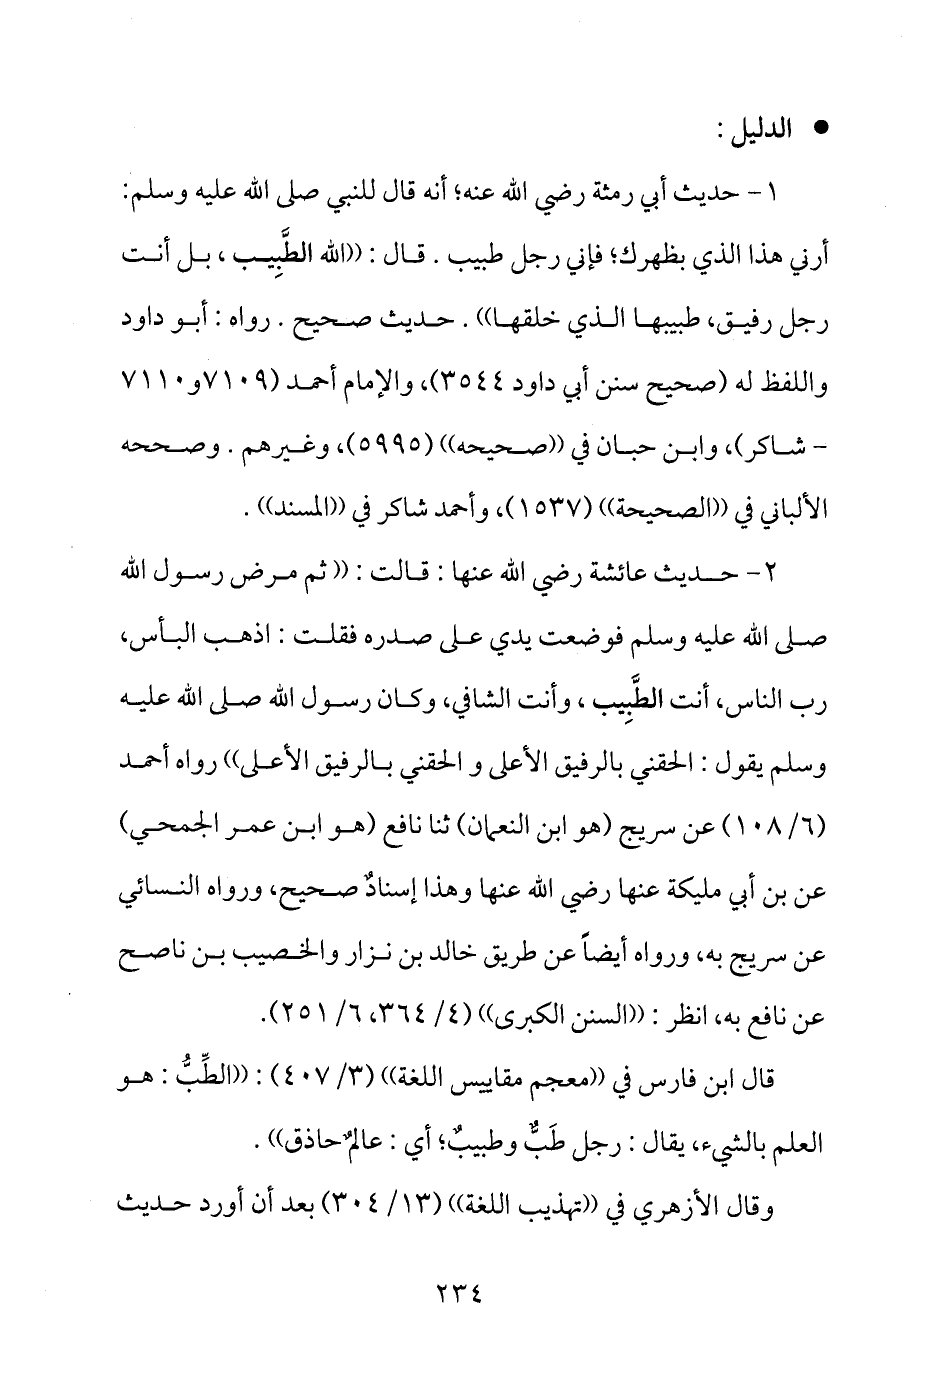 ● الدليل :
١- حديث أبي رمثة رضي الله عنه؛ أنه قال للنبي صلى الله عليه وسلم:
أرني هذا الذي بظهرك؛ فإني رجل طبيب . قال : ((الله الطَّبِيب ، بل أنت
رجل رفيق، طبيبها الذي خلقها)) . حديث صحيح . رواه : أبو داود
واللفظ له (صحيح سنن أبي داود ٣٥٤٤)، والإمام أحمد (٧١٠٩و٧١١٠
- شاكر)، وابن حبان في ((صحيحه)) (٥٩٩٥)، وغيرهم . وصححه
الألباني في ((الصحيحة)) (١٥٣٧)، وأحمد شاكر في ((المسند)) .
٢- حديث عائشة رضي الله عنها : قالت : (( ثم مرض رسول الله
صلى الله عليه وسلم فوضعت يدي على صدره فقلت : اذهب البأس،
رب الناس، أنت الطَّبِيب ، وأنت الشافي، وكان رسول الله صلى الله عليه
وسلم يقول : الحقني بالرفيق الأعلى و الحقني بالرفيق الأعلى)) رواه أحمد
(١٠٨/٦) عن سريج (هو ابن النعمان) ثنا نافع (هو ابن عمر الجمحي)
عن بن أبي مليكة عنها رضي الله عنها وهذا إسنادٌ صحيح، ورواه النسائي
عن سريج به، ورواه أيضاً عن طريق خالد بن نزار والخصيب بن ناصح
عن نافع به، انظر : ((السنن الكبرى)) (٤/ ٣٦٤، ٦/ ٢٥١).
قال ابن فارس في ((معجم مقاييس اللغة)) (٣/ ٤٠٧) : ((الطِّبُّ : هو
العلم بالشيء، يقال : رجل طَبٌّ وطبيبٌ؛ أي : عالمٌ حاذق)) .
وقال الأزهري في ((تهذيب اللغة)) (١٣/ ٣٠٤) بعد أن أورد حديث
٢٣٤